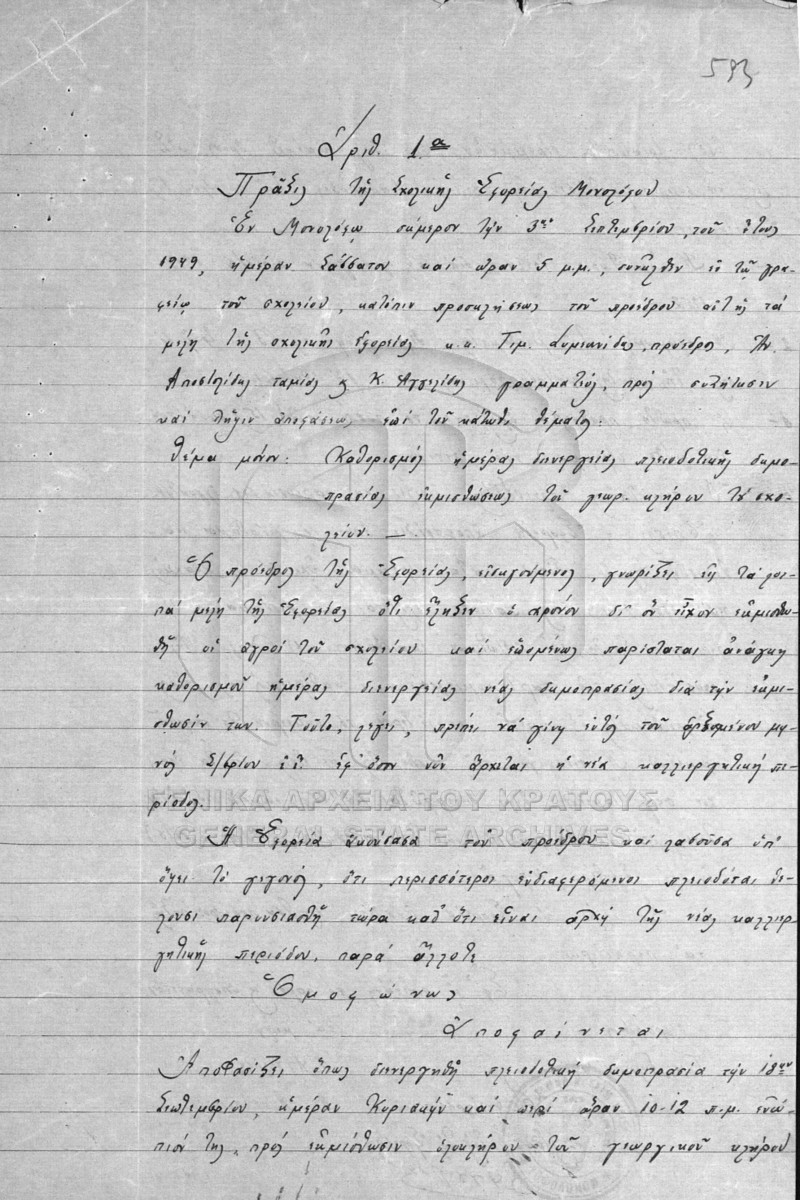 593
Ἀριθ. 1.α
Πρᾶξις τῆς Σχολικῆς Ἐφορείας Μονολόφου
Ἐν Μονολόφῳ σήμερον τὴν 3ην Σεπτεμβρίου, τοῦ ἔτους
1949, ἡμέραν Σάββατον καὶ ὥραν 5 μ.μ., συνῆλθεν ἐν τῷ γρα-
φείῳ τοῦ σχολείου, κατόπιν προσκλήσεως τοῦ προέδρου αὐτῆς τὰ
μέλη τῆς σχολικῆς ἐφορείας κ.κ. Τιμ. Συμεωνίδης, πρόεδρος, Ἀν.
Ἀποστολίδης ταμίας & Κ. Ἀγγελίδης γραμματεύς, πρὸς συζήτησιν
καὶ λῆψιν ἀποφάσεως ἐπὶ τοῦ κάτωθι θέματος:
Θέμα μόνον: Καθορισμὸς ἡμέρας διενεργείας πλειοδοτικῆς δημο-
πρασίας ἐκμισθώσεως τοῦ γεωρ. κλήρου τοῦ σχο-
λείου. —
Ὁ πρόεδρος τῆς Ἐφορείας, εἰσαγούμενος, γνωρίζει εἰς τὰ λοι-
πὰ μέλη τῆς Ἐφορείας ὅτι ἔληξεν ὁ χρόνος δι' ὃν εἶχον ἐκμισθω-
θῆ οἱ ἀγροὶ τοῦ σχολείου καὶ ἑπομένως παρίσταται ἀνάγκη
καθορισμοῦ ἡμέρας διενεργείας νέας δημοπρασίας διὰ τὴν ἐκμί-
σθωσίν των. Τοῦτο, λέγει, πρέπει νὰ γίνῃ ἐντὸς τοῦ ἀρξαμένου μη-
νὸς Σ/βρίου ἐ.ἔ. ἐφ' ὅσον νῦν ἄρχεται ἡ νέα καλλιεργητικὴ πε-
ρίοδος.
ΕΘΝΙΚΑ ΑΡΧΕΙΑ ΤΟΥ ΚΡΑΤΟΥΣ
GENERAL STATE ARCHIVES
Ἡ Ἐφορεία ἀκούσασα τοῦ προέδρου καὶ λαβοῦσα ὑπ'
ὄψει τὸ γεγονός, ὅτι περισσότεροι ἐνδιαφερόμενοι πλειοδόται θέ-
λουσι παρουσιασθῆ τώρα καθ' ὅτι εἶναι ἀρχὴ τῆς νέας καλλιερ-
γητικῆς περιόδου, παρὰ ἄλλοτε
Ὁμοφώνως
Ἀποφαίνεται
Ἀποφασίζει ὅπως διενεργηθῇ πλειοδοτικὴ δημοπρασία τὴν 18ην
Σεπτεμβρίου, ἡμέραν Κυριακὴν καὶ περὶ ὥραν 10-12 π.μ. ἐνώ-
πιόν της, πρὸς ἐκμίσθωσιν ὁλοκλήρου τοῦ γεωργικοῦ κλήρου